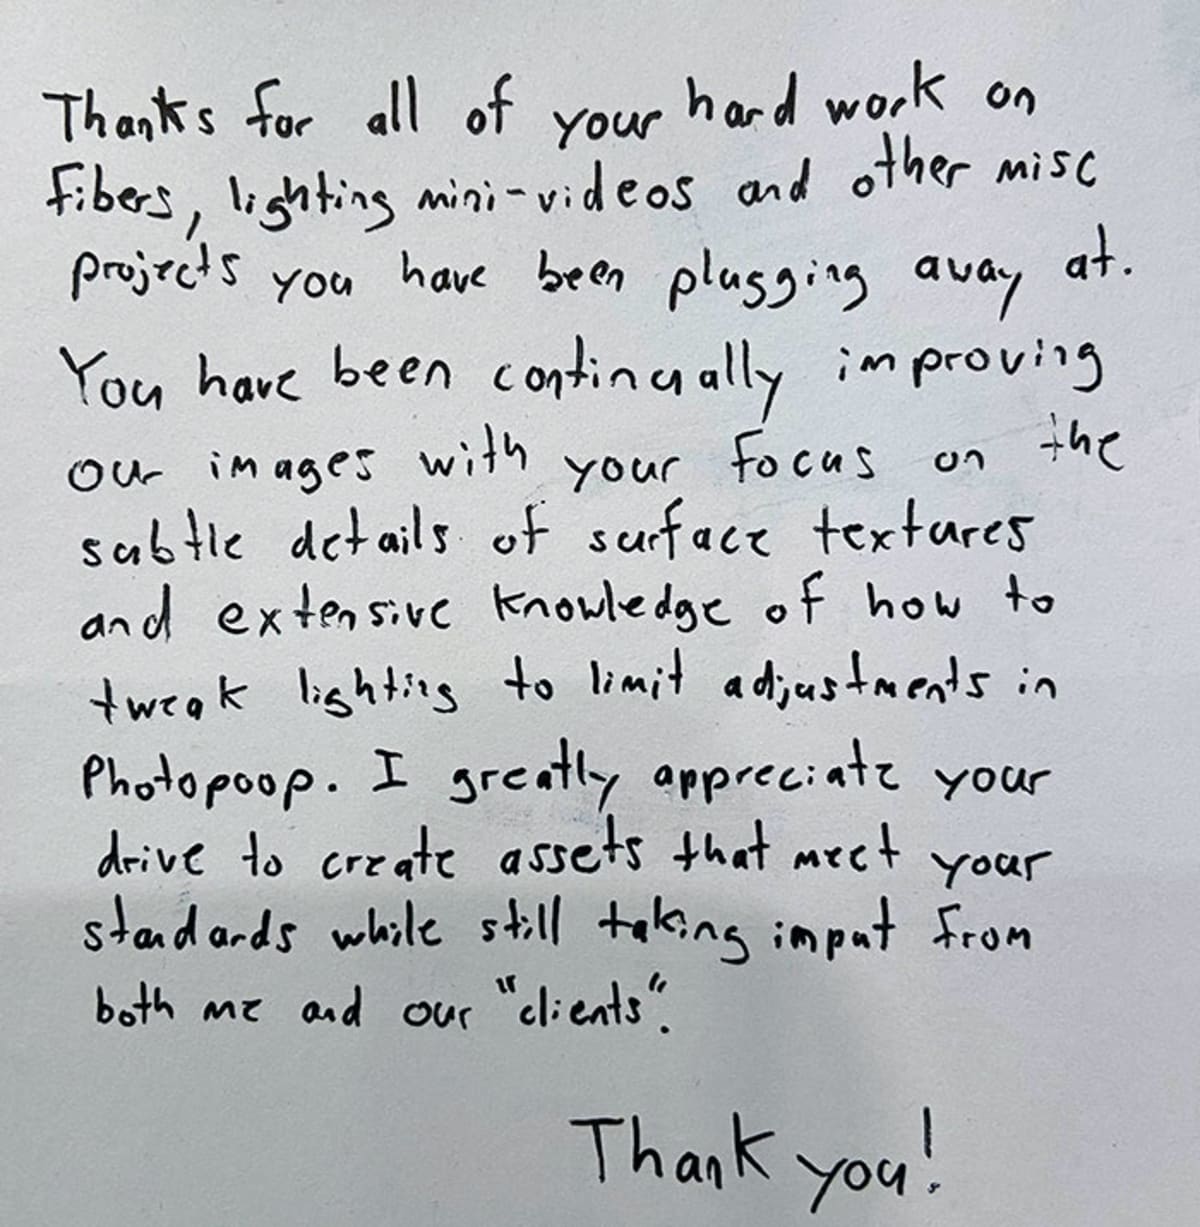 Thanks for all of your hard work on
fibers, lighting mini-videos and other misc
projects you have been plugging away at.
You have been continually improving
our images with your focus on the
subtle details of surface textures
and extensive knowledge of how to
tweak lighting to limit adjustments in
Photopoop. I greatly appreciate your
drive to create assets that meet your
standards while still taking imput from
both me and our "clients".
Thank you!